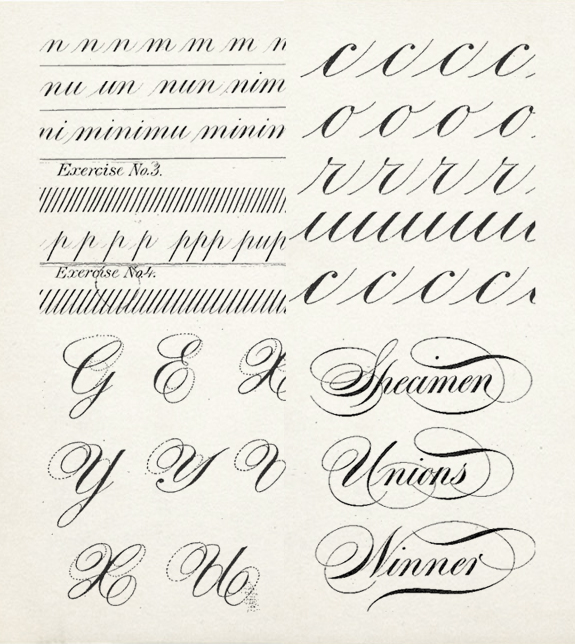 n n n m m m n
nu un nun nim
ni minimu minin
Exercise No.3.
p p p p ppp pup
Exercise No4.
c c c c
o o o o
r r r r
uuuuuu
c c c c c
G E X
Y Y V
X U
Specimen
Unions
Winner